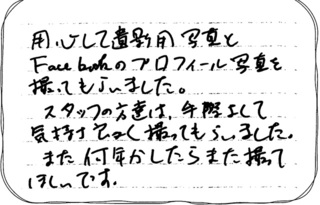 用心して遺影用写真と
Facebookのプロフィール写真を
撮ってもらいました。
スタッフの方達は、手際よくて
気持ちよく撮ってもらいました。
また何年かしたらまた撮って
ほしいです。